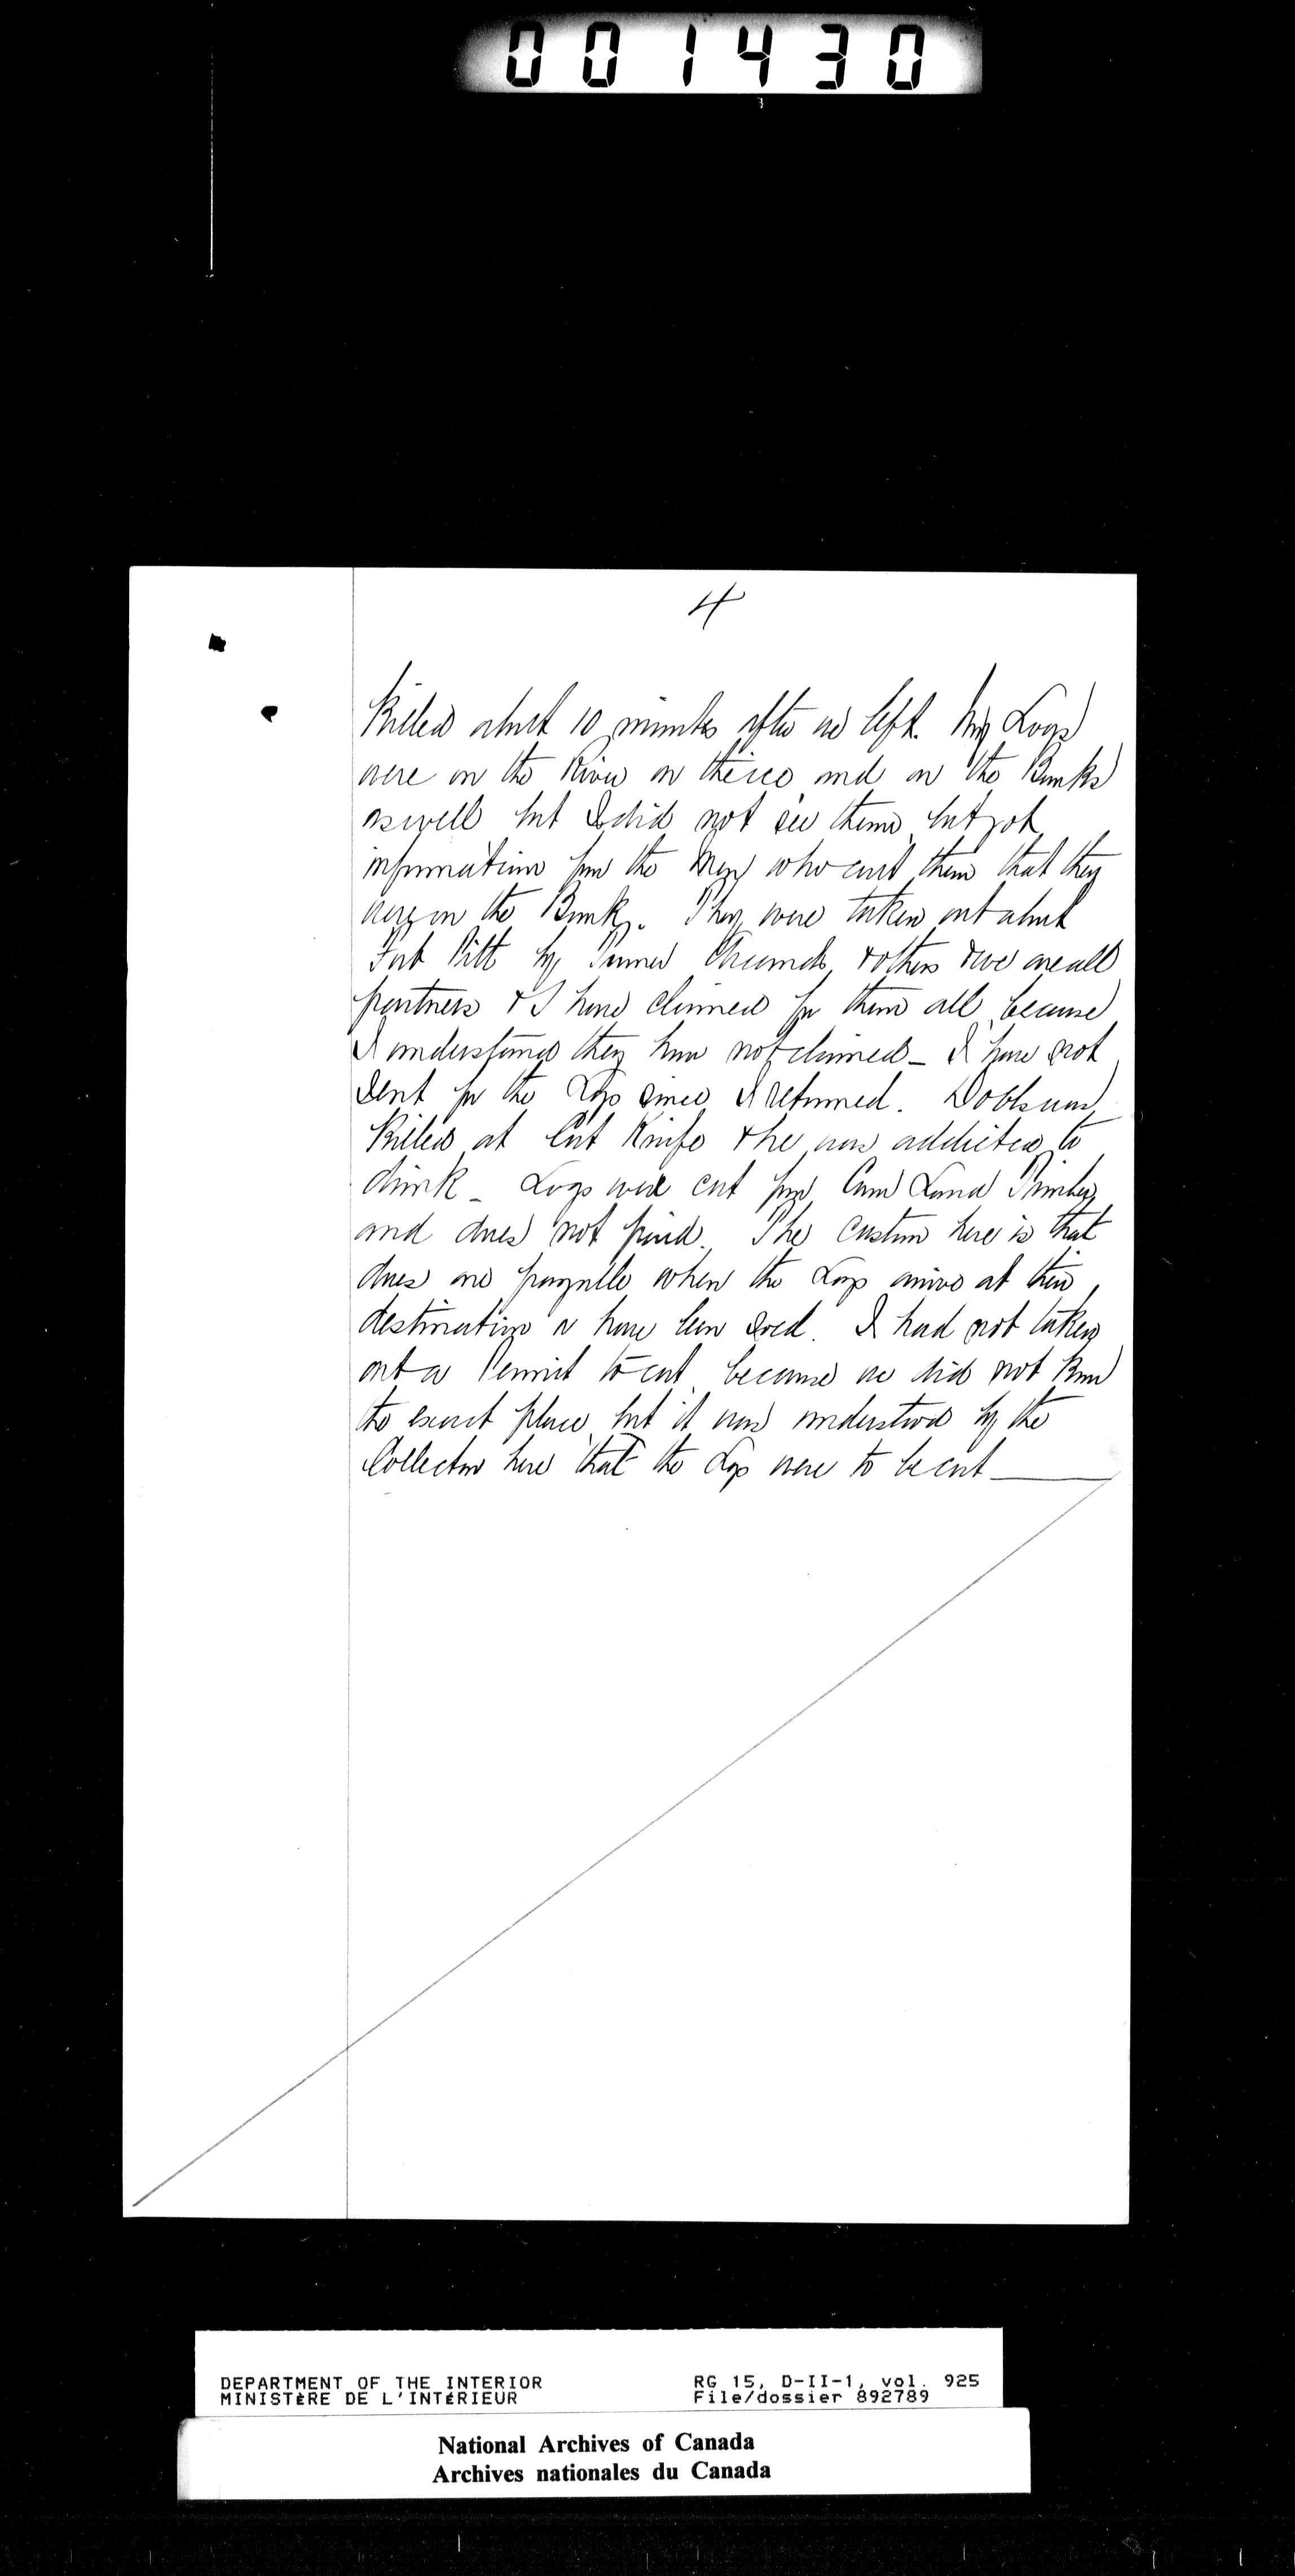 001430
4
Killed about 10 minutes after we left. My Logs
were on the River on the ice and on the Banks
as well but I did not see them but got
information from the Men who cut them that they
were on the Bank. They were taken out about
Fort Pitt by & others & we are all
partners & I have claimed for them all because
I understand they have not claimed _ I have not
sent for the Logs since I returned. Dobbs was
Killed at Cut Knife & he was addicted to
drink _ Logs were cut from Land Timber
and dues not paid. The Custom here is that
dues are payable when the Logs arrive at their
destination or have been used. I had not taken
out a Permit to cut because we did not know
the exact place but it was understood by the
Collector here that the Logs were to be cut
DEPARTMENT OF THE INTERIOR
MINISTÈRE DE L'INTÉRIEUR
RG 15, D-II-1, vol. 925
File/dossier 892789
National Archives of Canada
Archives nationales du Canada